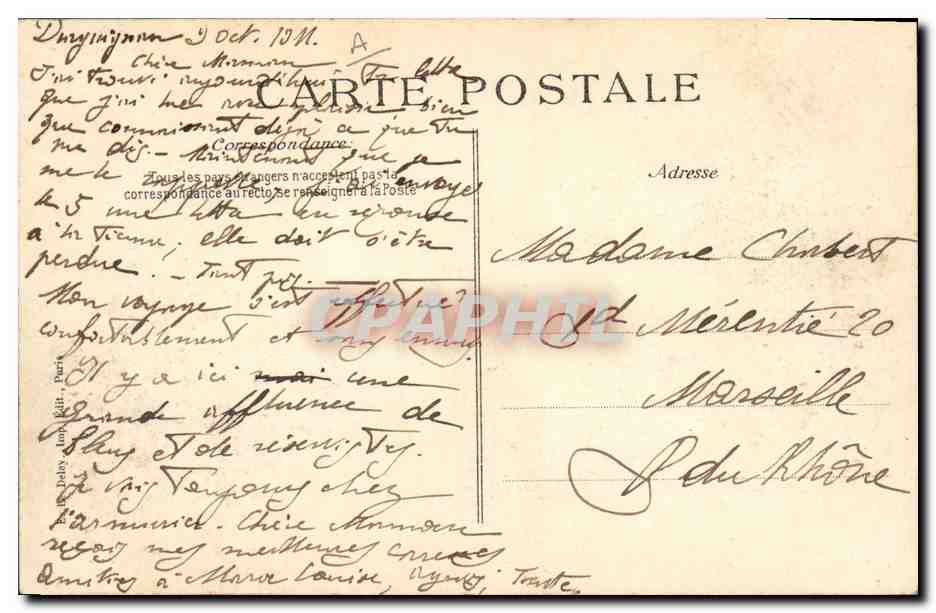 Draguignan 9 Oct. 1911.
A
Chère Maman
J'ai trouvé aujourd'hui Ta lettre
que j'ai lue avec plaisir bien
que connaissant déjà ce que tu
me dis. - Maintenant que je
me le rappelle, j'ai envoyé
le 5 une lettre en réponse
à la tienne, elle doit s'être
perdue. - Tant pis.
Mon voyage s'est effectué
confortablement et sans ennui
Il y a ici mais une
grande affluence de
bleus et de réservistes.
Je vais toujours chez
l'armurier. Chère Maman
reçois mes meilleures caresses
Amitiés à Marie Louise,
CARTE POSTALE
Correspondance:
Tous les pays étrangers n'acceptent pas la
correspondance au recto, se renseigner à la Poste
Adresse
Madame Chabert
Bd Mérentié 20
Marseille
B du Rhône
Delay, Imp. Edit., Paris
CPAPHIL